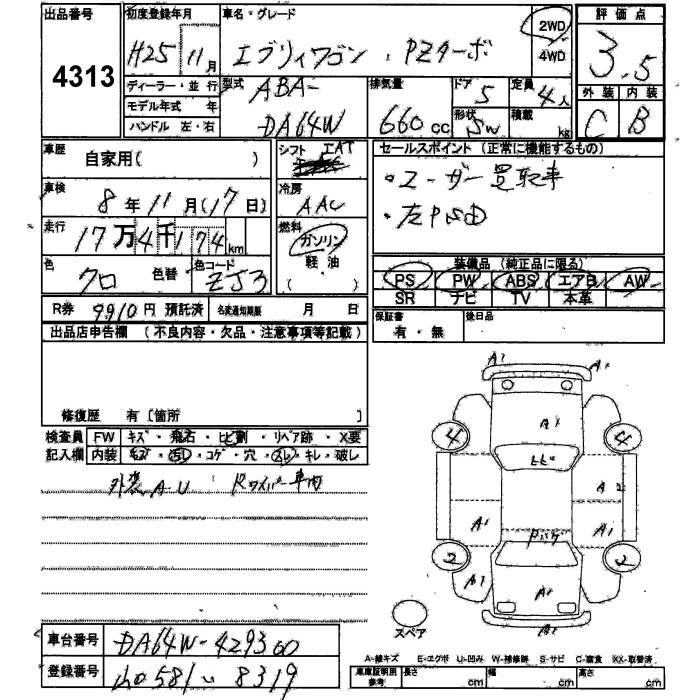 出品番号 4313
初度登録年月 H25 11月
車名・グレード エブリイワゴン PZターボ
2WD
4WD
評価点 3.5
ディーラー・並行
モデル年式 年
ハンドル 左・右
型式 ABA-DA64W
排気量 660cc
ドア 5
形状 SW
定員 4人
積載 kg
外装 C
内装 B
車歴 自家用( )
シフト IAT
セールスポイント (正常に機能するもの)
・ユーザー買取車
・左PSD
車検 8年11月(17日)
冷房 AAC
走行 17万4千174km
燃料 ガソリン
軽油
( )
色 クロ 色替
色コード ZJ3
装備品 (純正品に限る)
PS PW ABS エアB AW
SR ナビ TV 本革
R券 9910円 預託済
名変通知期限 月 日
保証書 有・無
後日品
出品店申告欄 (不良内容・欠品・注意事項等記載)
修復歴 有〔箇所 〕
検査員記入欄
FW キズ・飛石・ヒビ割・リペア跡・X要
内装 キズ・汚レ・コゲ・穴・スレ・キレ・破レ
外装A・U Rワイパー車内
A1 A1
A1
4 4
ヒビ
A2
A1 A1
2 2
A1 A1
A1
スペア
車台番号 DA64W-429300
登録番号 581 8319
A-線キズ E-エクボ U-凹み W-補修跡 S-サビ C-腐食 XX-取替済
車庫証明用参考 長さ cm 幅 cm 高さ cm